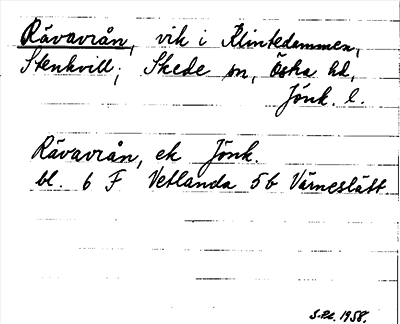 Rävavrån, vik i Klintedammen,
Stenkvill; Skede sn, Östra hd,
Jönk. l.
Rävavrån, ek Jönk.
bl. 6 F Vetlanda 5b Värneslätt.
1958.